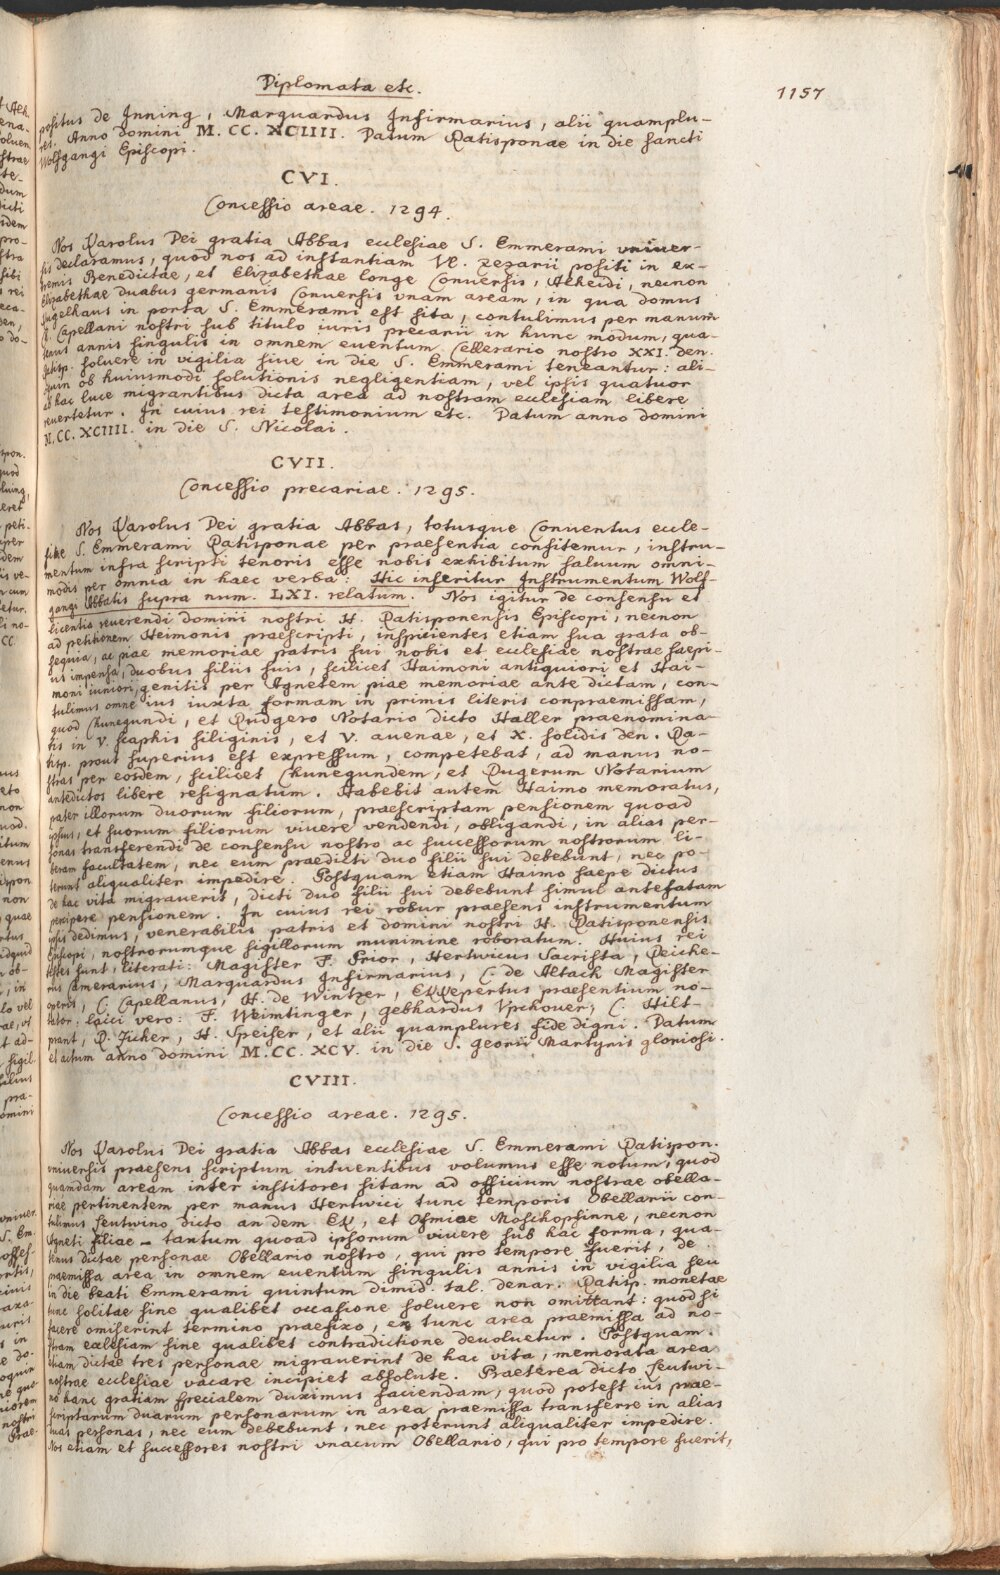 Diplomata etc.
1157
positus de Inning, Marquardus Infirmarius, alii quamplu-
res. Anno Domini M. CC. XCIIII. Datum Ratisponae in die sancti
Wolfgangi Episcopi.
CVI.
Concessio areae. 1294.
Nos Karolus Dei gratia Abbas ecclesiae S. Emmerami vniuer-
sis declaramus, quod nos ad instantiam Vl. Zezarii positi in ex-
tremis Benedictae, et Elyzabethae longe Conuersis, Alheidi, necnon
Elyzabethae duabus germanis Conuersis vnam aream, in qua domus
Sugelhaus in porta S. Emmerami est sita, contulimus per manum
Capellani nostri sub titulo iuris precarii in hunc modum, qua-
tenus annis singulis in omnem euentum Cellerario nostro XXI. den.
Ratisp. soluere in vigilia siue in die S. Emmerami teneantur: ali-
quin ob huiusmodi solutionis negligentiam, vel ipsis quatuor
ab hac luce migrantibus dicta area ad nostram ecclesiam libere
reuertetur. In cuius rei testimonium etc. Datum anno Domini
M. CC. XCIIII. in die S. Nicolai.
CVII.
Concessio precariae. 1295.
Nos Karolus Dei gratia Abbas, totusque Conuentus eccle-
siae S. Emmerami Ratisponae per praesentia confitemur, instru-
mentum infra scripti tenoris esse nobis exhibitum saluum omni-
modis per omnia in haec verba: Hic inseritur Instrumentum Wolf-
gangi Abbatis supra num. LXI. relatum. Nos igitur de consensu et
licentia reuerendi domini nostri H. Ratisponensis Episcopi, necnon
ad petitionem Heimonis praescripti, inspicientes etiam sua grata ob-
sequia, ac piae memoriae patris sui nobis et ecclesiae nostrae saepi-
us impensa, duobus filiis suis, scilicet Haimoni antiquiori et Hai-
moni iuniori, genitis per Agnetem piae memoriae ante dictam, con-
tulimus omne ius iuxta formam in primis literis conpraemissam,
quod Chunegundi, et Rudgero Notario dicto Haller praenomina-
tis in V. scaphis siliginis, et V. auenae, et X. solidis den. Ra-
tisp. prout superius est expressum, competebat, ad manus no-
stras per eosdem, scilicet Chunegundem, et Rugerum Notarium
antedictos libere resignatum. Habebit autem Haimo memoratus,
pater illorum duorum filiorum, praescriptam pensionem quoad
ipsius, et suorum filiorum viuere vendendi, obligandi, in alias per-
sonas transferendi de consensu nostro ac successorum nostrorum li-
beram facultatem, nec eum praedicti duo filii sui debebunt, nec po-
terunt aliqualiter impedire. Postquam etiam Haimo saepe dictus
de hac vita migrauerit, dicti duo filii sui debebunt simul antefatam
percipere pensionem. In cuius rei robur praesens instrumentum
ipsis dedimus, venerabilis patris et domini nostri H. Ratisponensis
Episcopi, nostrorumque sigillorum munimine roboratum. Huius rei
testes sunt, literati: Magister F. Prior, Hertwicus Sacrista, Reiche-
rus Camerarius, Marquardus Infirmarius, C. de Altach Magister
operis, C. Capellanus, H. de Wintzer, Ekkepertus praesentium no-
tator: laici vero: F. Weimtinger, Gebhardus Vpchouer, C. Hilt-
prant, R. Zicher, H. Speiser, et alii quamplures fide digni. Datum
et actum anno Domini M. CC. XCV. in die S. Georii Martyris gloriosi.
CVIII.
Concessio areae. 1295.
Nos Karolus Dei gratia Abbas ecclesiae S. Emmerami Ratispon.
vniuersis praesens scriptum intuentibus volumus esse notum, quod
quamdam aream inter institores sitam ad officium nostrae obella-
riae pertinentem per manus Hertwici tunc temporis Obellarii con-
tulimus Leutwino dicto an dem Ek, et Osmiae Moschopsinne, necnon
Agneti filiae - tantum quoad ipsorum viuere sub hac forma, qua-
tenus dictae personae Obellario nostro, qui pro tempore fuerit, de
praemissa area in omnem euentum singulis annis in vigilia seu
in die beati Emmerami quintum dimid. tal. denar. Ratisp. monetae
tunc solitae sine qualibet occasione soluere non omittant: quod si
facere omiserint termino praefixo, ex tunc area praemissa ad no-
stram ecclesiam sine qualibet contradictione deuoluetur. Postquam
etiam dictae tres personae migrauerint de hac vita, memorata area
nostrae ecclesiae vacare incipiet absolute. Praeterea dicto Leutwi-
no hanc gratiam specialem duximus faciendam, quod potest ius prae-
scriptarum duarum personarum in area praemissa transferre in alias
duas personas, nec eum debebunt, nec poterunt aliqualiter impedire.
Nos etiam et successores nostri vnacum Obellario, qui pro tempore fuerit,